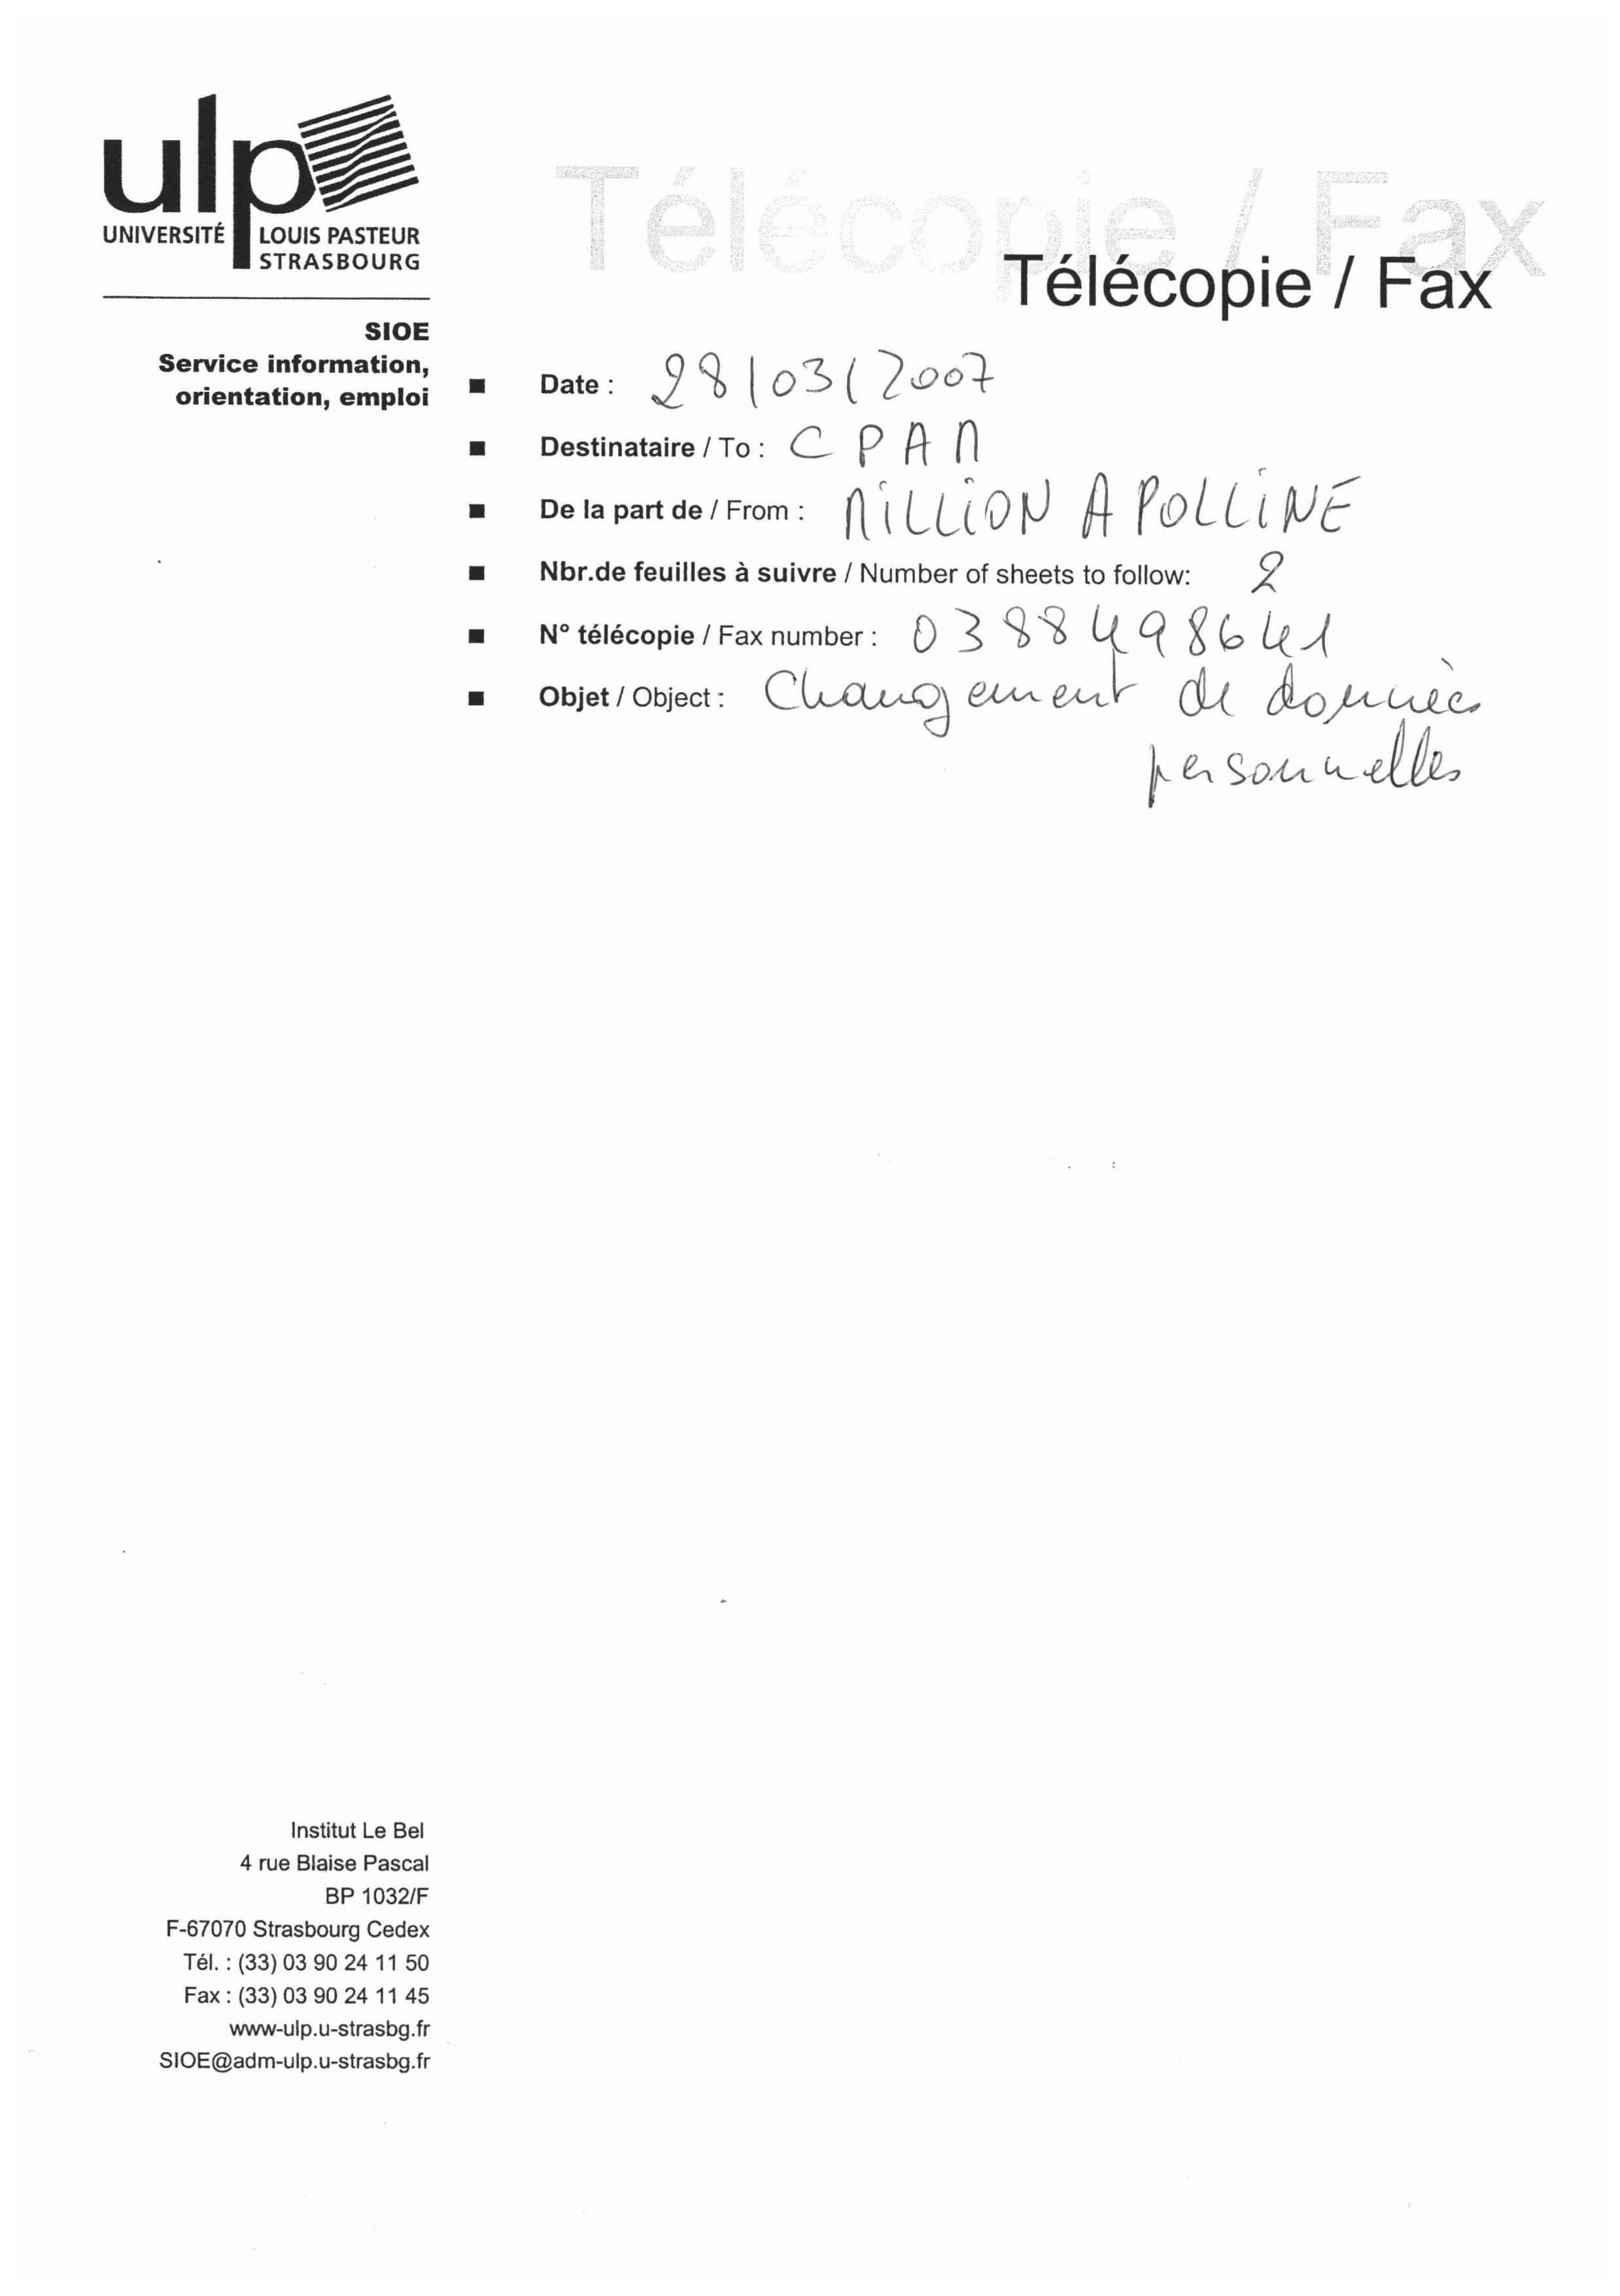 ulp
UNIVERSITÉ LOUIS PASTEUR
STRASBOURG
Télécopie / Fax
Télécopie / Fax
SIOE
Service information,
orientation, emploi
Date : 28/03/2007
Destinataire / To : CPAM
De la part de / From : MILLION APOLLINE
Nbr.de feuilles à suivre / Number of sheets to follow: 2
N° télécopie / Fax number : 0388498641
Objet / Object : Changement de données
personnelles
Institut Le Bel
4 rue Blaise Pascal
BP 1032/F
F-67070 Strasbourg Cedex
Tél. : (33) 03 90 24 11 50
Fax : (33) 03 90 24 11 45
www-ulp.u-strasbg.fr
SIOE@adm-ulp.u-strasbg.fr